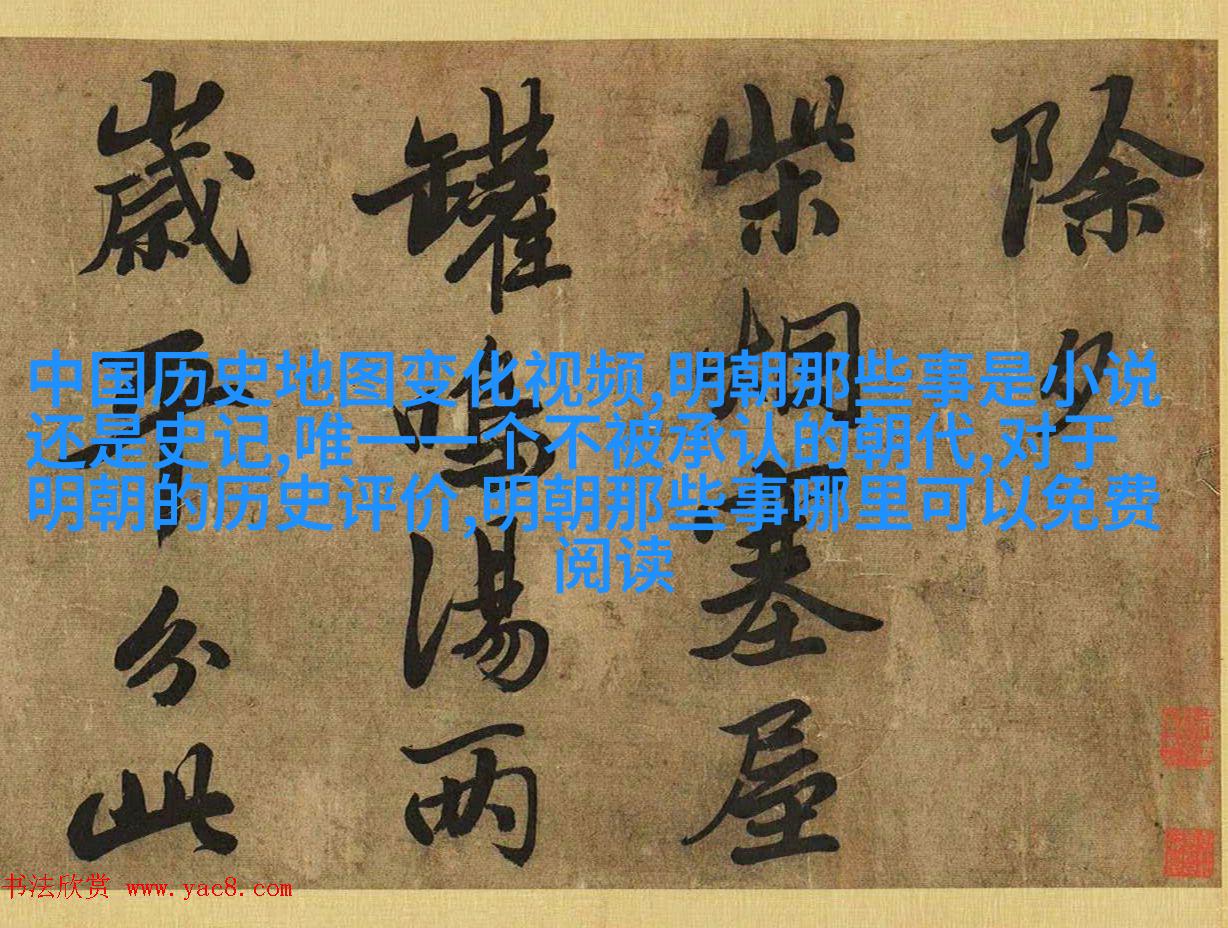 除夕
柴烟塞屋
罐鳴湯兩
歲平分此
中国历史地图变化视频,明朝那些事是小说
还是史记,唯一一个不被承认的朝代,对于
明朝的历史评价,明朝那些事哪里可以免费
阅读
书法欣赏 www.yac8.com